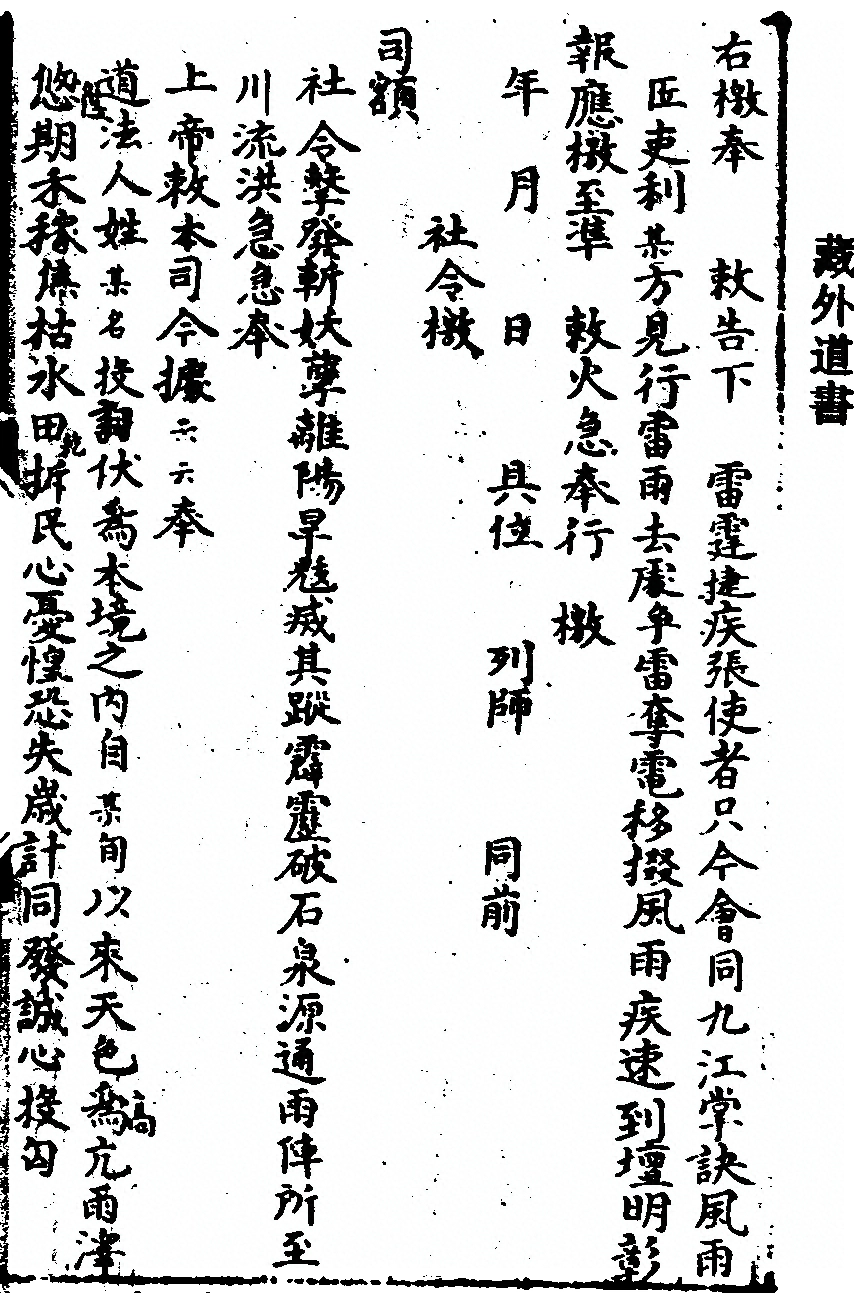 藏外道書
右檄奉　敕告下　雷霆捷疾張使者只今會同九江掌訣風雨
匠吏利某方見行雷雨去處牟雷奪電移掇風雨疾速到壇明彰
報應檄至準　敕火急奉行　檄
年　月　日　具位　列師　同前
社令檄
司額
社令擊發斬妖孽離陽旱魃威其蹤霹靂破石泉源通雨陣所至
川流洪急急奉
上帝敕本司今據云云奉
道法人姓某名投詞伏爲本境之內自某旬以來天色爲亢高雨澤
愆期禾稼焦枯冰田乾拆民心憂惶恐失歲計同發誠心投匃